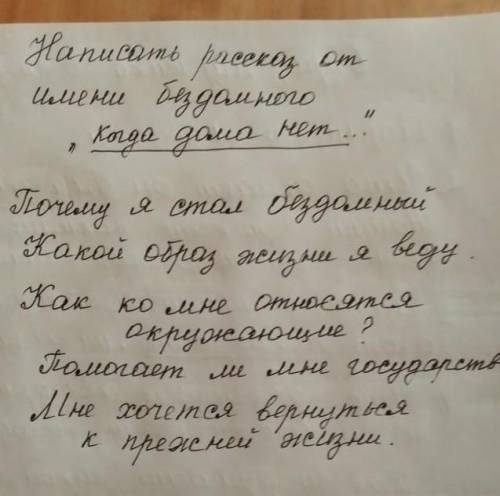 Написать рассказ от
имени бездомного
„когда дома нет..."
Почему я стал бездомный
Какой образ жизни я веду.
Как ко мне относятся
окружающие?
Помогает ли мне государств
Мне хочется вернуться
к прежней жизни.